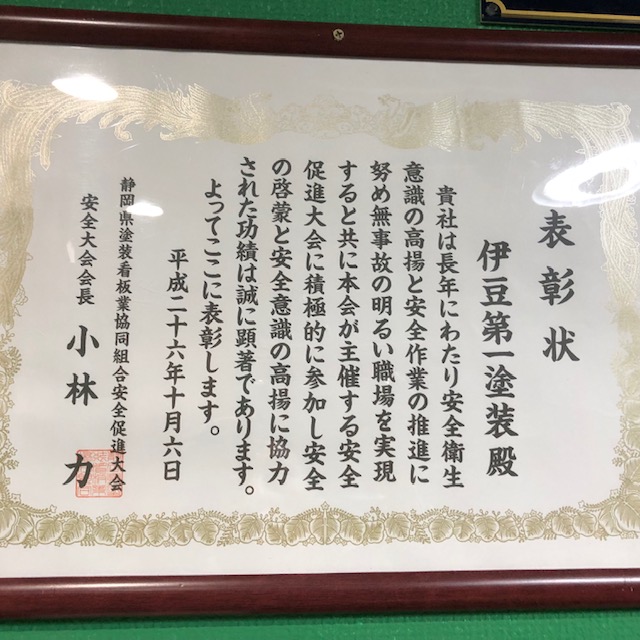 表彰状
伊豆第一塗装殿
貴社は長年にわたり安全衛生
意識の高揚と安全作業の推進に
努め無事故の明るい職場を実現
すると共に本会が主催する安全
促進大会に積極的に参加し安全
の啓蒙と安全意識の高揚に協力
された功績は誠に顕著であります。
よってここに表彰します。
平成二十六年十月六日
静岡県塗装看板業協同組合安全促進大会
安全大会会長 小林 力